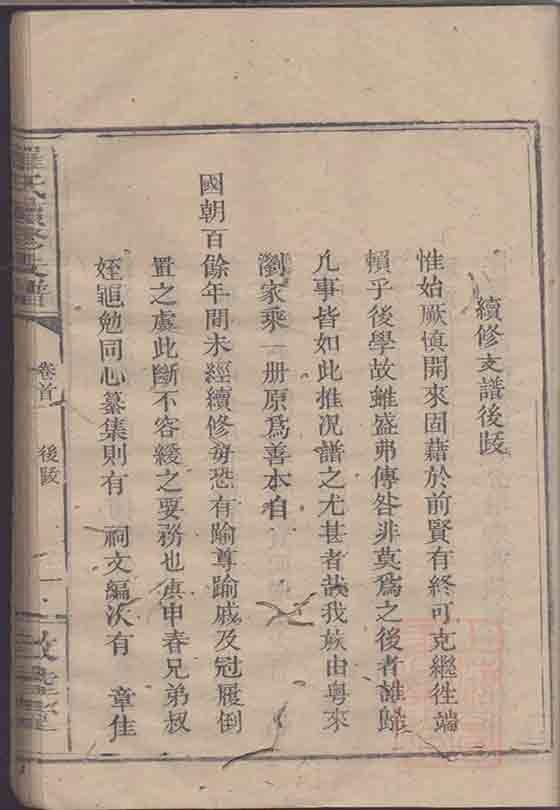 續修支譜後䟦
惟始厥慎開來固藉於前賢有終可克繼徃端
賴乎後學故雖盛弗傳咎非莫爲之後者誰歸
凡事皆如此推况譜之尤甚者哉我族由粤來
瀏家乘一册原爲善本自
國朝百餘年間未經續修毎恐有踰尊踰戚及冠履倒
置之處此斷不容緩之要務也庚申春兄弟叔
姪黽勉同心纂集則有 祠文編次有 章佳
氏續修支譜
卷首 後䟦 一